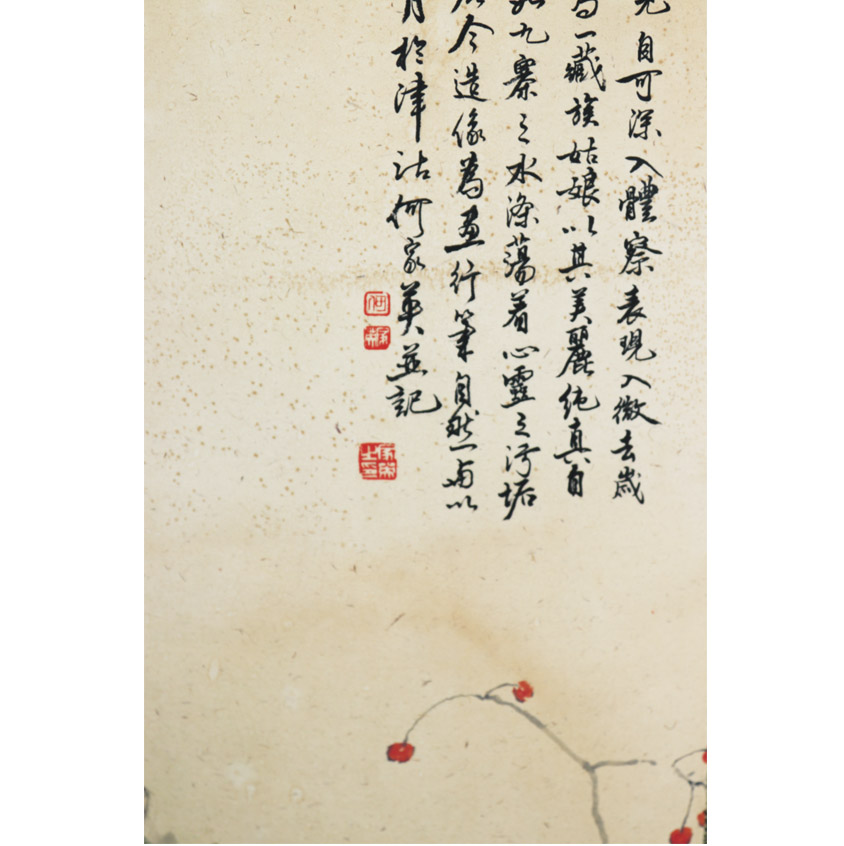 自可深入體察表現入微去歲
一藏族姑娘以其美麗純真自
九寨之水滌蕩着心靈之污垢
今造像為畫行筆自然而以
月於津沽何家英並記